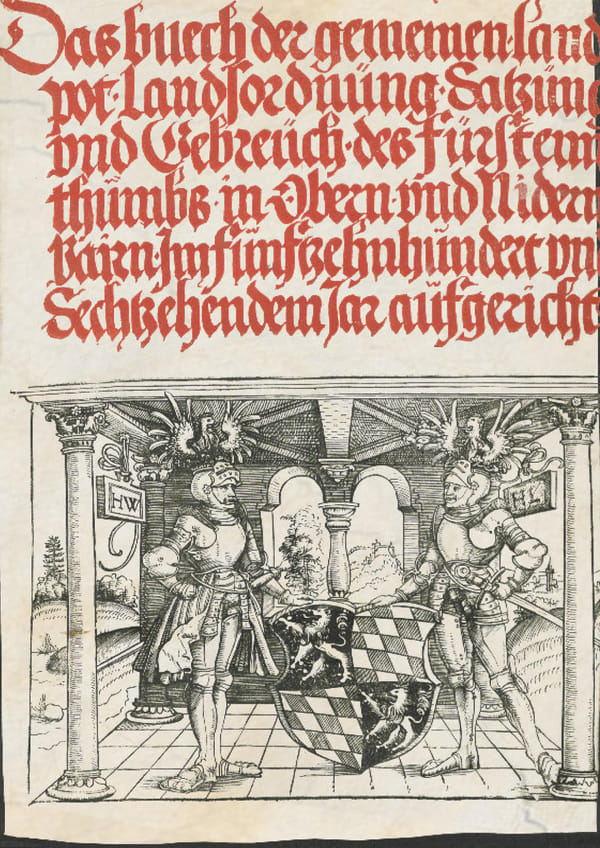 Das buech der gemeinen land
pot· Landsordnung· Satzung
vnd Gebreüch· des fürstenn
thumbs· in Obern· vnd Nidern
Bairn· Jm fünfftzehnhundert vn
Sechtzehendem Jar aufgericht
HW
HL